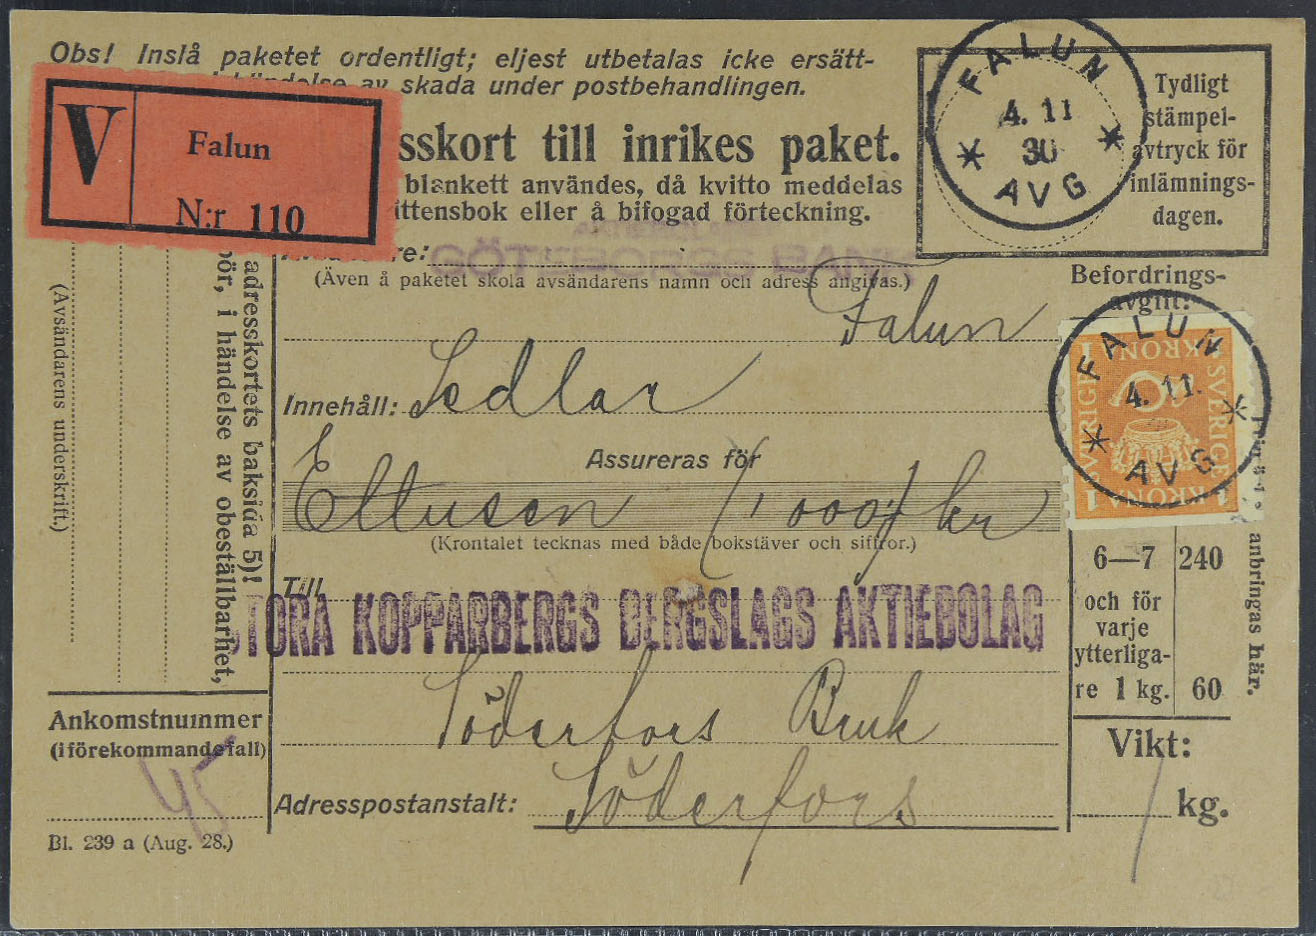 Obs! Inslå paketet ordentligt; eljest utbetalas icke ersätt-
av skada under postbehandlingen.
V
Falun
N:r 110
sskort till inrikes paket.
blankett användes, då kvitto meddelas
ittensbok eller å bifogad förteckning.
FALUN
4. 11
30
AVG
Tydligt
stämpel-
avtryck för
inlämnings-
dagen.
re:
(Även å paketet skola avsändarens namn och adress angivas.)
Falun
Innehåll: Sedlar
Assureras för
Ettusen (1000) kr
(Krontalet tecknas med både bokstäver och siffror.)
Till
STORA KOPPARBERGS BERGSLAGS AKTIEBOLAG
Söderfors Bruk
Adresspostanstalt: Söderfors
Befordrings-
avgift:
1 KRONA 1 KRONA
SVERIGE SVERIGE
1 KRONA 1 KRONA
FALUN
4. 11.
AVG
anbringas här.
6—7 240
och för
varje
ytterliga-
re 1 kg. 60
Vikt:
1 kg.
adresskortets baksida 5)!
bör, i händelse av obeställbarhet,
(Avsändarens underskrift.)
Ankomstnummer
(i förekommande fall)
45
Bl. 239 a (Aug. 28.)